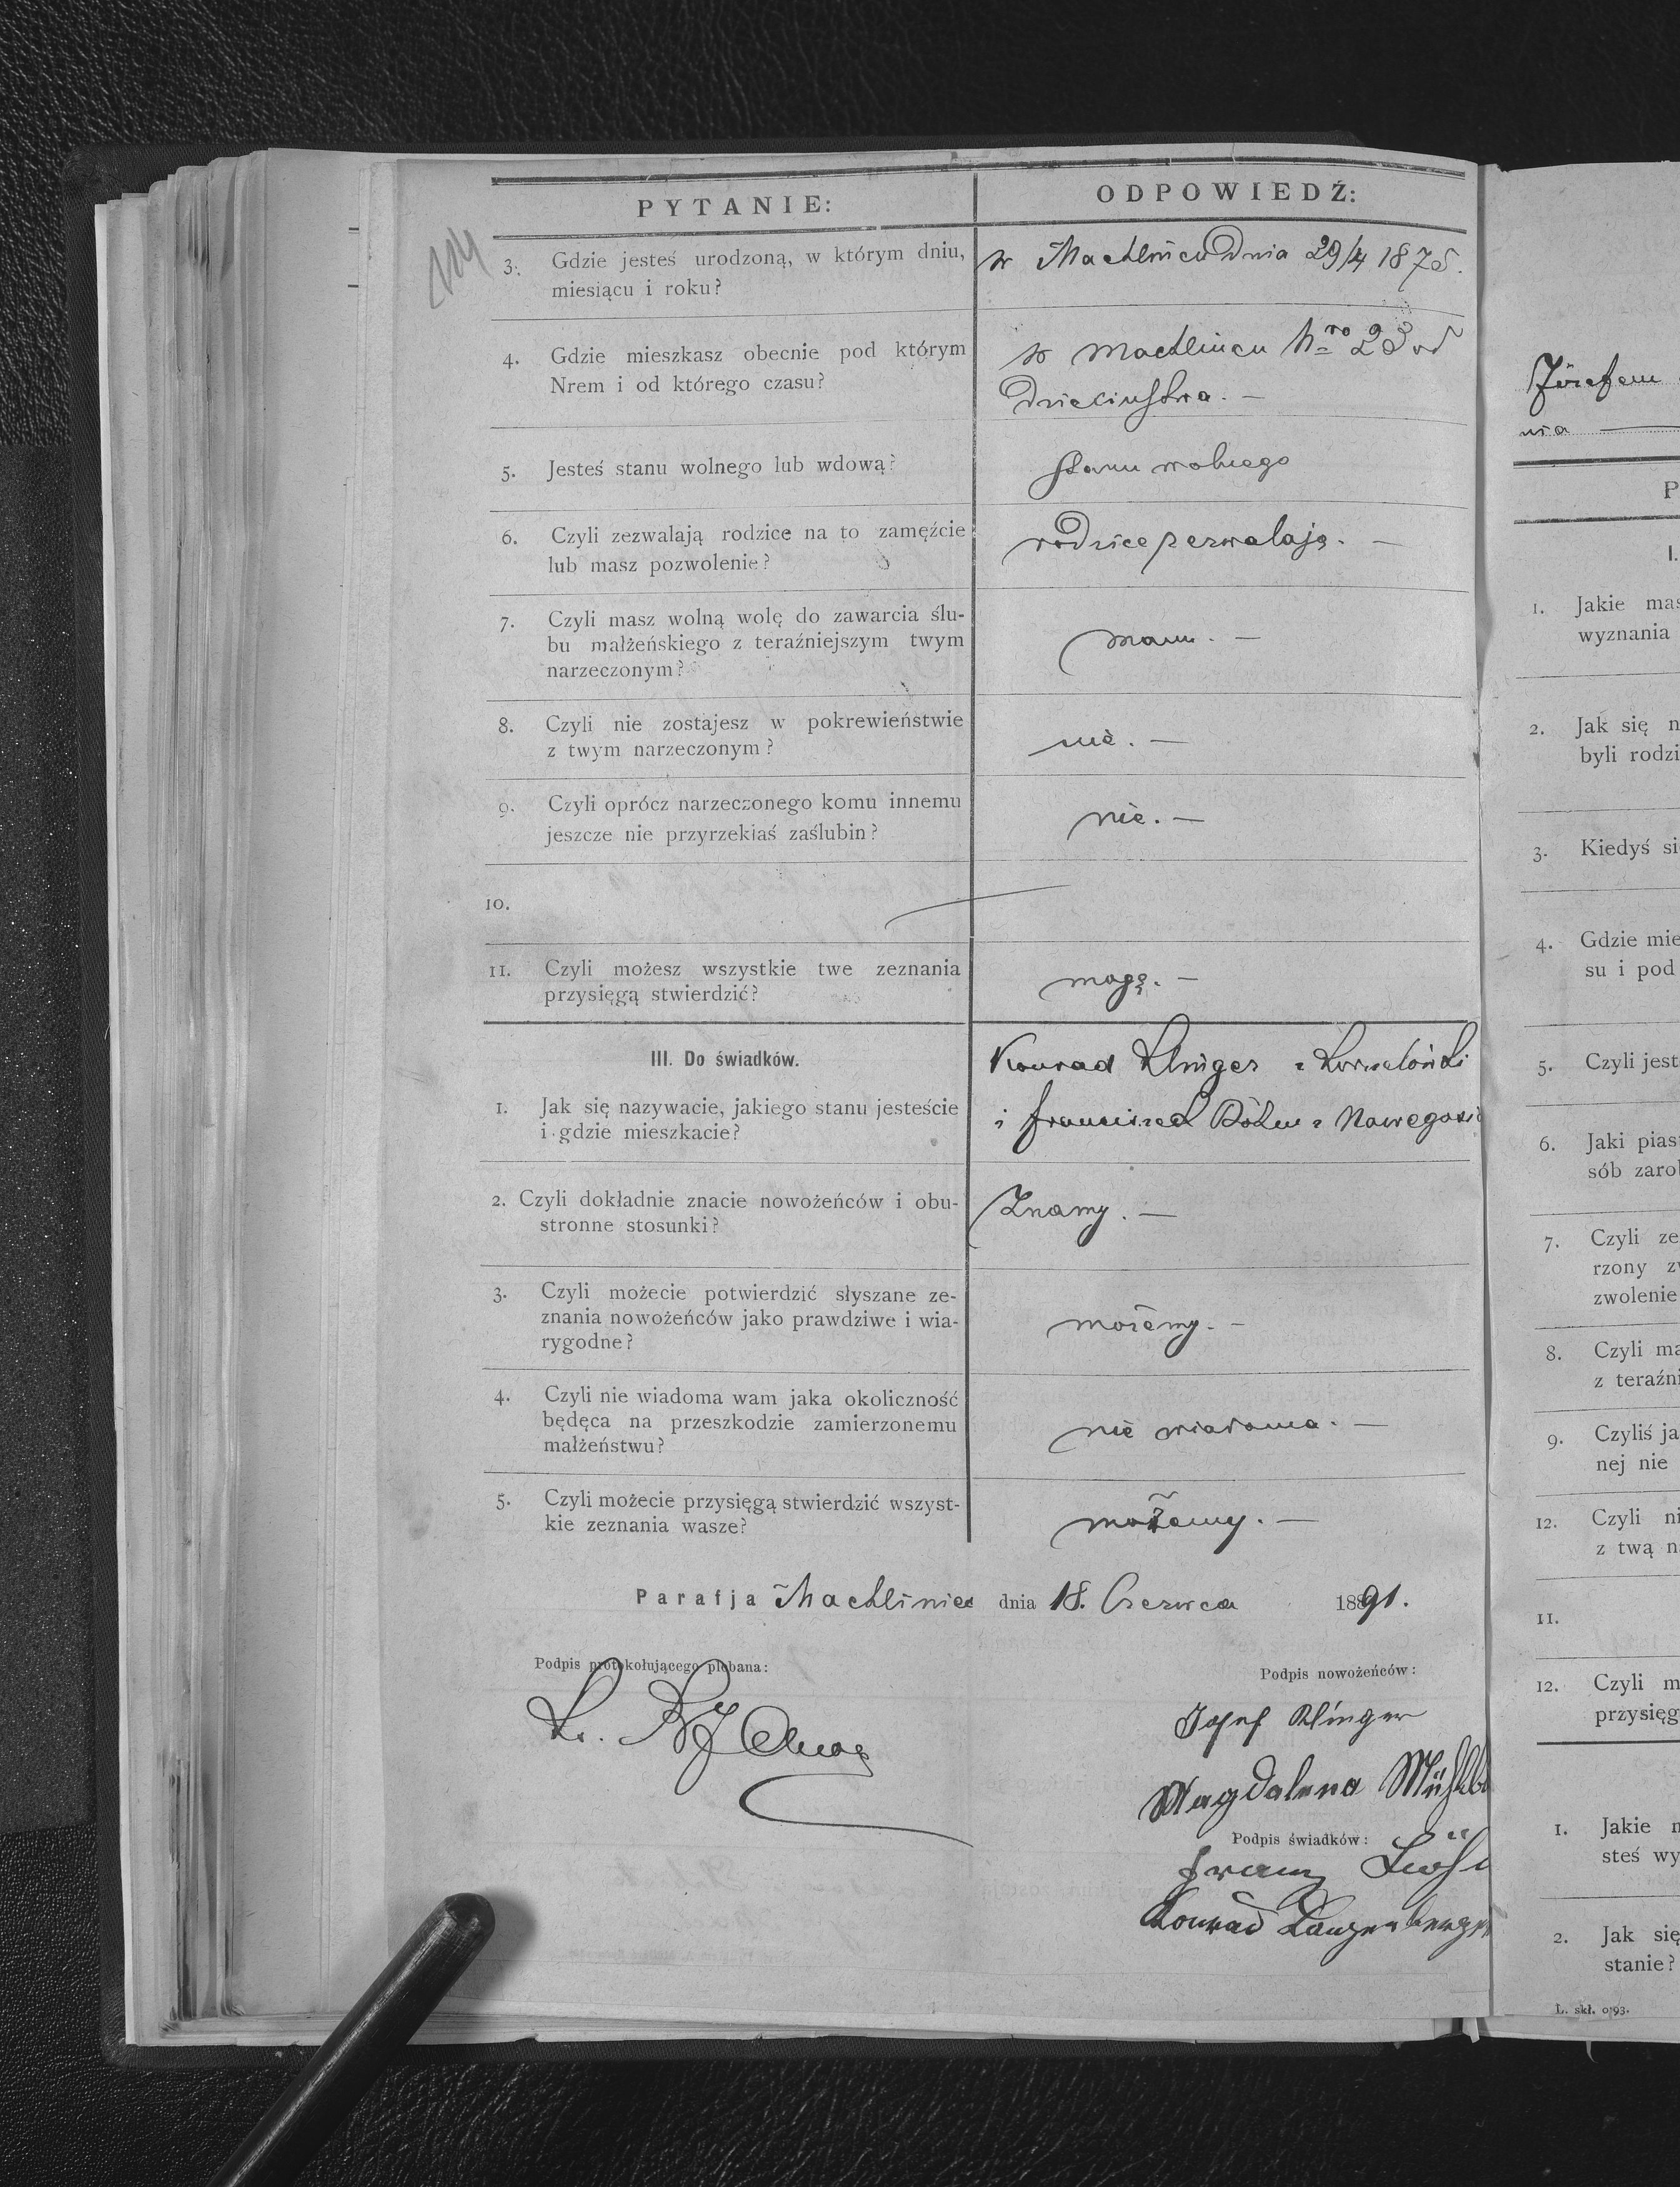 PYTANIE:
ODPOWIEDŹ:
3. Gdzie jesteś urodzoną, w którym dniu,
miesiącu i roku?
w Machlincu Dnia 29/4 187
4. Gdzie mieszkasz obecnie pod którym
Nrem i od którego czasu?
w Machlincu Nro 23 od
Dzieciństwa. —
5. Jesteś stanu wolnego lub wdową?
stanu wolnego
6. Czyli zezwalają rodzice na to zamęźcie
lub masz pozwolenie?
rodzice zezwalają. —
7. Czyli masz wolną wolę do zawarcia ślu-
bu małżeńskiego z teraźniejszym twym
narzeczonym?
mam. —
8. Czyli nie zostajesz w pokrewieństwie
z twym narzeczonym?
nie. —
9. Czyli oprócz narzeczonego komu innemu
jeszcze nie przyrzekłaś zaślubin?
nie. —
10.
11. Czyli możesz wszystkie twe zeznania
przysięgą stwierdzić?
mogę. —
III. Do świadków.
1. Jak się nazywacie, jakiego stanu jesteście
i gdzie mieszkacie?
Konrad z
i Franciszek z
2. Czyli dokładnie znacie nowożeńców i obu-
stronne stosunki?
Znamy. —
3. Czyli możecie potwierdzić słyszane ze-
znania nowożeńców jako prawdziwe i wia-
rygodne?
możemy. —
4. Czyli nie wiadoma wam jaka okoliczność
będęca na przeszkodzie zamierzonemu
małżeństwu?
nie wiadoma. —
5. Czyli możecie przysięgą stwierdzić wszyst-
kie zeznania wasze?
możemy. —
Parafja Machliniec dnia 18. Czerwca 1891.
Podpis protokołującego plebana:
Podpis nowożeńców:
Josef Klinger
Magdalena Mühlb
Podpis świadków:
Franz
Konrad Langenberger
Józefem
nia
P
I.
1. Jakie mas
wyznania
2. Jak się n
byli rodzi
3. Kiedyś si
4. Gdzie mie
su i pod
5. Czyli jest
6. Jaki pias
sób zarol
7. Czyli ze
rzony z
zwolenie
8. Czyli ma
z teraźni
9. Czyliś ja
nej nie
12. Czyli ni
z twą n
11.
12. Czyli m
przysięg
1. Jakie n
steś wy
2. Jak się
stanie?
L. skł. 0·93.